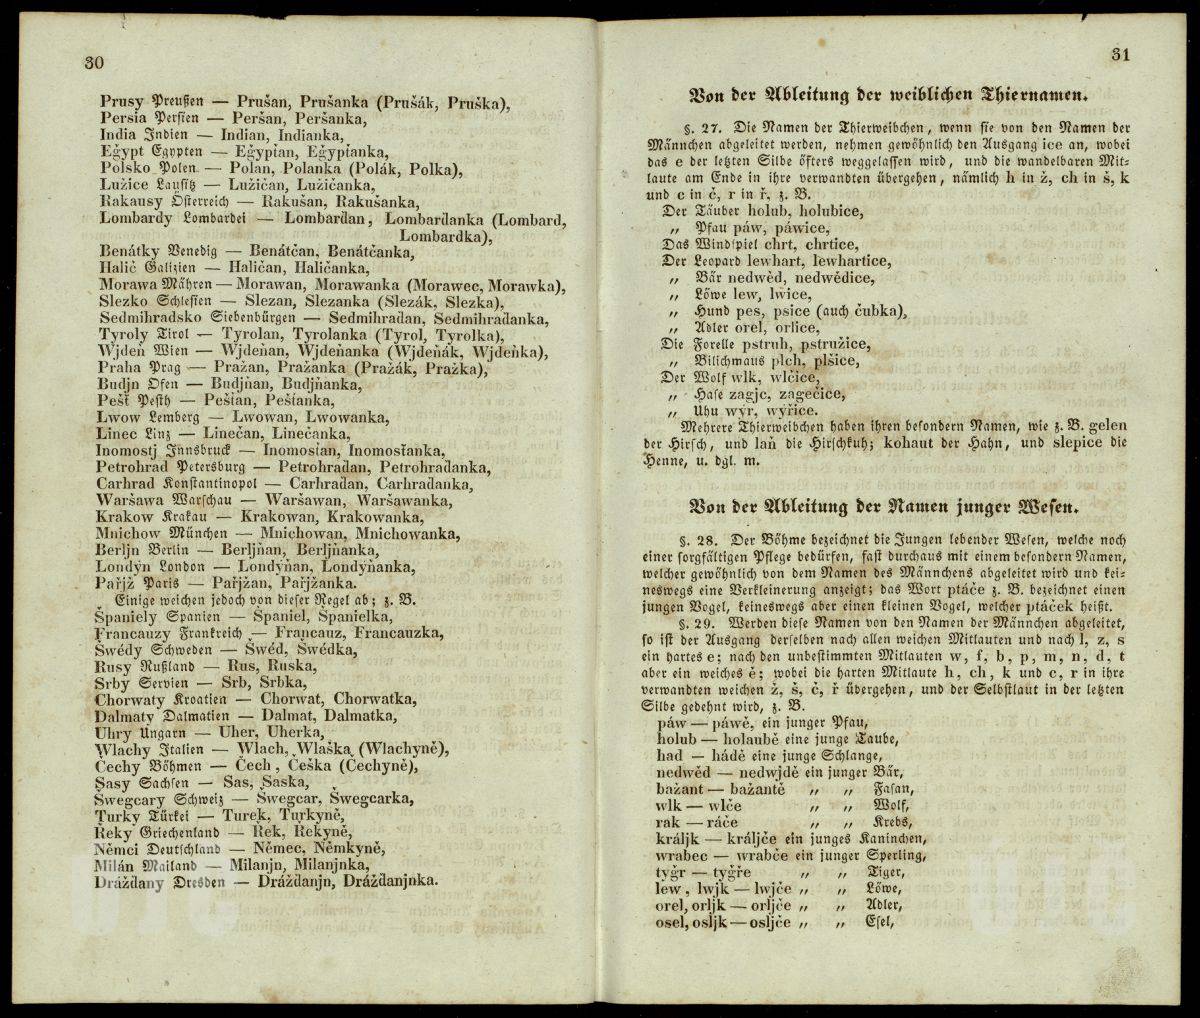 30
Prusy Preußen — Prušan, Prušanka (Prušák, Pruška),
Persia Persien — Peršan, Peršanka,
India Indien — Indian, Indianka,
Eğypt Egypten — Eğyptan, Eğyptanka,
Polsko Polen — Polan, Polanka (Polák, Polka),
Lužice Lausitz — Lužičan, Lužičanka,
Rakausy Österreich — Rakušan, Rakušanka,
Lombardy Lombardei — Lombarďan, Lombarďanka (Lombard,
Lombardka),
Benátky Venedig — Benátčan, Benátčanka,
Halič Galizien — Haličan, Haličanka,
Morawa Mähren — Morawan, Morawanka (Morawec, Morawka),
Slezko Schlesien — Slezan, Slezanka (Slezák, Slezka),
Sedmihradsko Siebenbürgen — Sedmihraďan, Sedmihraďanka,
Tyroly Tirol — Tyrolan, Tyrolanka (Tyrol, Tyrolka),
Wjdeň Wien — Wjdeňan, Wjdeňanka (Wjdeňák, Wjdeňka),
Praha Prag — Pražan, Pražanka (Pražák, Pražka),
Budjn Ofen — Budjňan, Budjňanka,
Pešť Pesth — Pešťan, Pešťanka,
Lwow Lemberg — Lwowan, Lwowanka,
Linec Linz — Linečan, Linečanka,
Inomostj Innsbruck — Inomosťan, Inomosťanka,
Petrohrad Petersburg — Petrohraďan, Petrohraďanka,
Carhrad Konstantinopol — Carhraďan, Carhraďanka,
Waršawa Warschau — Waršawan, Waršawanka,
Krakow Krakau — Krakowan, Krakowanka,
Mnichow München — Mnichowan, Mnichowanka,
Berljn Berlin — Berljňan, Berljňanka,
Londýn London — Londýňan, Londýňanka,
Pařjž Paris — Pařjžan, Pařjžanka.
Einige weichen jedoch von dieser Regel ab; z. B.
Španiely Spanien — Španiel, Španielka,
Francauzy Frankreich — Francauz, Francauzka,
Šwédy Schweden — Šwéd, Šwédka,
Rusy Rußland — Rus, Ruska,
Srby Servien — Srb, Srbka,
Chorwaty Kroatien — Chorwat, Chorwatka,
Dalmaty Dalmatien — Dalmat, Dalmatka,
Uhry Ungarn — Uher, Uherka,
Wlachy Italien — Wlach, Wlaška (Wlachyně),
Čechy Böhmen — Čech, Češka (Čechyně),
Sasy Sachsen — Sas, Saska,
Šwegcary Schweiz — Šwegcar, Šwegcarka,
Turky Türkei — Turek, Turkyně,
Řeky Griechenland — Řek, Řekyně,
Němci Deutschland — Němec, Němkyně,
Milán Mailand — Milanjn, Milanjnka,
Dráždany Dresden — Drážďanjn, Drážďanjnka.
31
Von der Ableitung der weiblichen Thiernamen.
§. 27. Die Namen der Thierweibchen, wenn sie von den Namen der
Männchen abgeleitet werden, nehmen gewöhnlich den Ausgang ice an, wobei
das e der letzten Silbe öfters weggelassen wird, und die wandelbaren Mit-
laute am Ende in ihre verwandten übergehen, nämlich h in ž, ch in š, k
und c in č, r in ř, z. B.
Der Täuber holub, holubice,
„ Pfau páw, páwice,
Das Windspiel chrt, chrtice,
Der Leopard lewhart, lewhartice,
„ Bär nedwěd, nedwědice,
„ Löwe lew, lwice,
„ Hund pes, psice (auch čubka),
„ Adler orel, orlice,
Die Forelle pstruh, pstružice,
„ Bilichmaus plch, plšice,
Der Wolf wlk, wlčice,
„ Hase zagjc, zagečice,
„ Uhu wýr, wýřice.
Mehrere Thierweibchen haben ihren besondern Namen, wie z. B. gelen
der Hirsch, und laň die Hirschkuh; kohaut der Hahn, und slepice die
Henne, u. dgl. m.
Von der Ableitung der Namen junger Wesen.
§. 28. Der Böhme bezeichnet die Jungen lebender Wesen, welche noch
einer sorgfältigen Pflege bedürfen, fast durchaus mit einem besondern Namen,
welcher gewöhnlich von dem Namen des Männchens abgeleitet wird und kei-
neswegs eine Verkleinerung anzeigt; das Wort ptáče z. B. bezeichnet einen
jungen Vogel, keineswegs aber einen kleinen Vogel, welcher ptáček heißt.
§. 29. Werden diese Namen von den Namen der Männchen abgeleitet,
so ist der Ausgang derselben nach allen weichen Mitlauten und nach l, z, s
ein hartes e; nach den unbestimmten Mitlauten w, f, b, p, m, n, d, t
aber ein weiches ě; wobei die harten Mitlaute h, ch, k und c, r in ihre
verwandten weichen ž, š, č, ř übergehen, und der Selbstlaut in der letzten
Silbe gedehnt wird, z. B.
páw — páwě, ein junger Pfau,
holub — holaubě eine junge Taube,
had — hádě eine junge Schlange,
nedwěd — nedwjdě ein junger Bär,
bažant — bažantě „ „ Fasan,
wlk — wlče „ „ Wolf,
rak — ráče „ „ Krebs,
králjk — králjče ein junges Kaninchen,
wrabec — wrabče ein junger Sperling,
tyğr — tyğře „ „ Tiger,
lew, lwjk — lwjče „ „ Löwe,
orel, orljk — orljče „ „ Adler,
osel, osljk — osljče „ „ Esel,